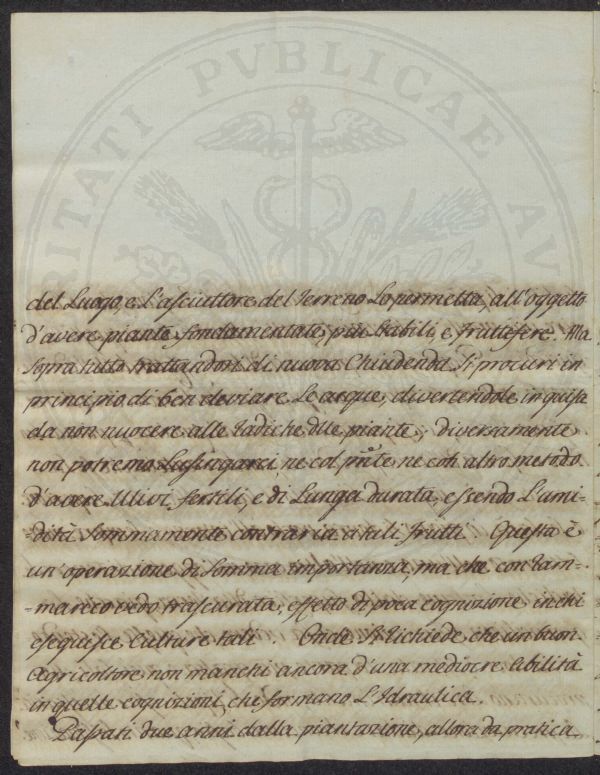 RITATI PVBLICAE AV
del Luogo, e L'asciuttore del Terreno Lo permetta, all'oggetto
d'avere piante fondamentate, piu stabili, e fruttifere. Ma
sopra tutto trattandosi di nuova Chiudenda si procuri in
principio di ben deviare Le acque, divertendole in guisa
da non nuocere alle radiche delle piante, diversamente
non potremo Lusingarci ne col pnte ne con altro metodo
d'avere Ulivi fertili, e di Lunga durata, essendo L'umi-
-dità sommamente contraria a tali frutti. Questa è
un'operazione di somma importanza, ma che con ram-
-marico vedo trascurata, effetto di poca cognizione in chi
eseguisce Culture tali. Onde si richiede che un buon
Agricoltore non manchi ancora d'una mediocre abilità
in quelle cognizioni, che formano L'Idraulica.
Passati due anni dalla piantazione, allora da pratica